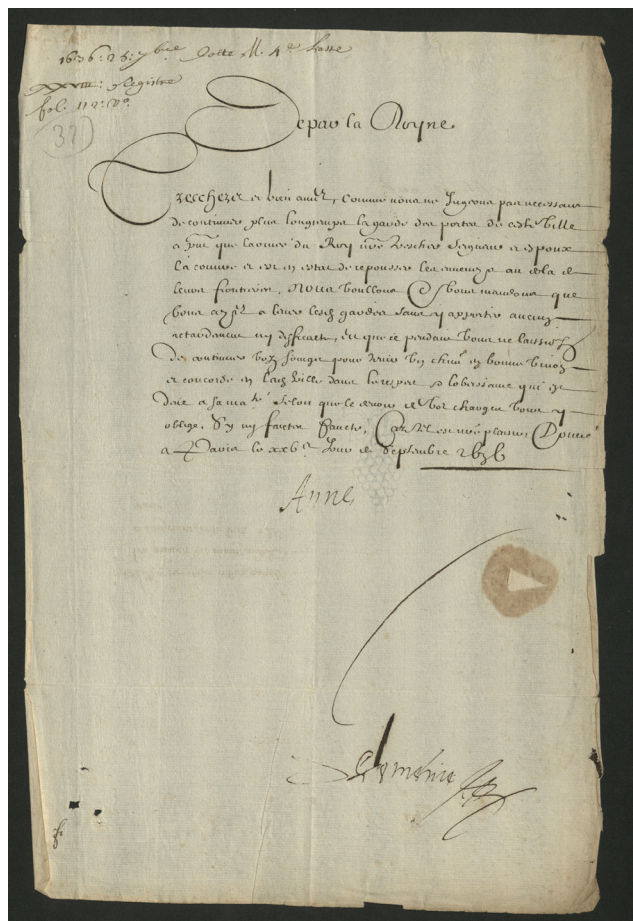 1636: 25: 7bre Cotté M. 4e Liasse
XXVIII: Registre
fol. 112: Vo.
37
De par la Royne
Treschers et bien amez, Comme nous ne Jugeons pas necessaire
de continuer plus longtemps la garde des portes de ceste ville
a pnt que larmée du Roy nre Trescher Seigneur et espoux
la couvre et est en estat de repousser les ennemys au dela de
leurs frontieres, Nous voullons Et vous mandons que
vous ayez a lever lesd gardes sans y apporter aucun
retardement ny difficulté, Et que ce pendant vous ne laissiez
de continuer voz soings pour tenir un chacun en bonne union
et concorde en lad ville dans le respect et lobeissance qui est
deue a sa ma.té selon que le devoir de voz charges vous y
oblige, Sy ny faictes faulte, Car tel est nre plaisir, Donné
a Paris le xxve Jour de Septembre 1636
Anne